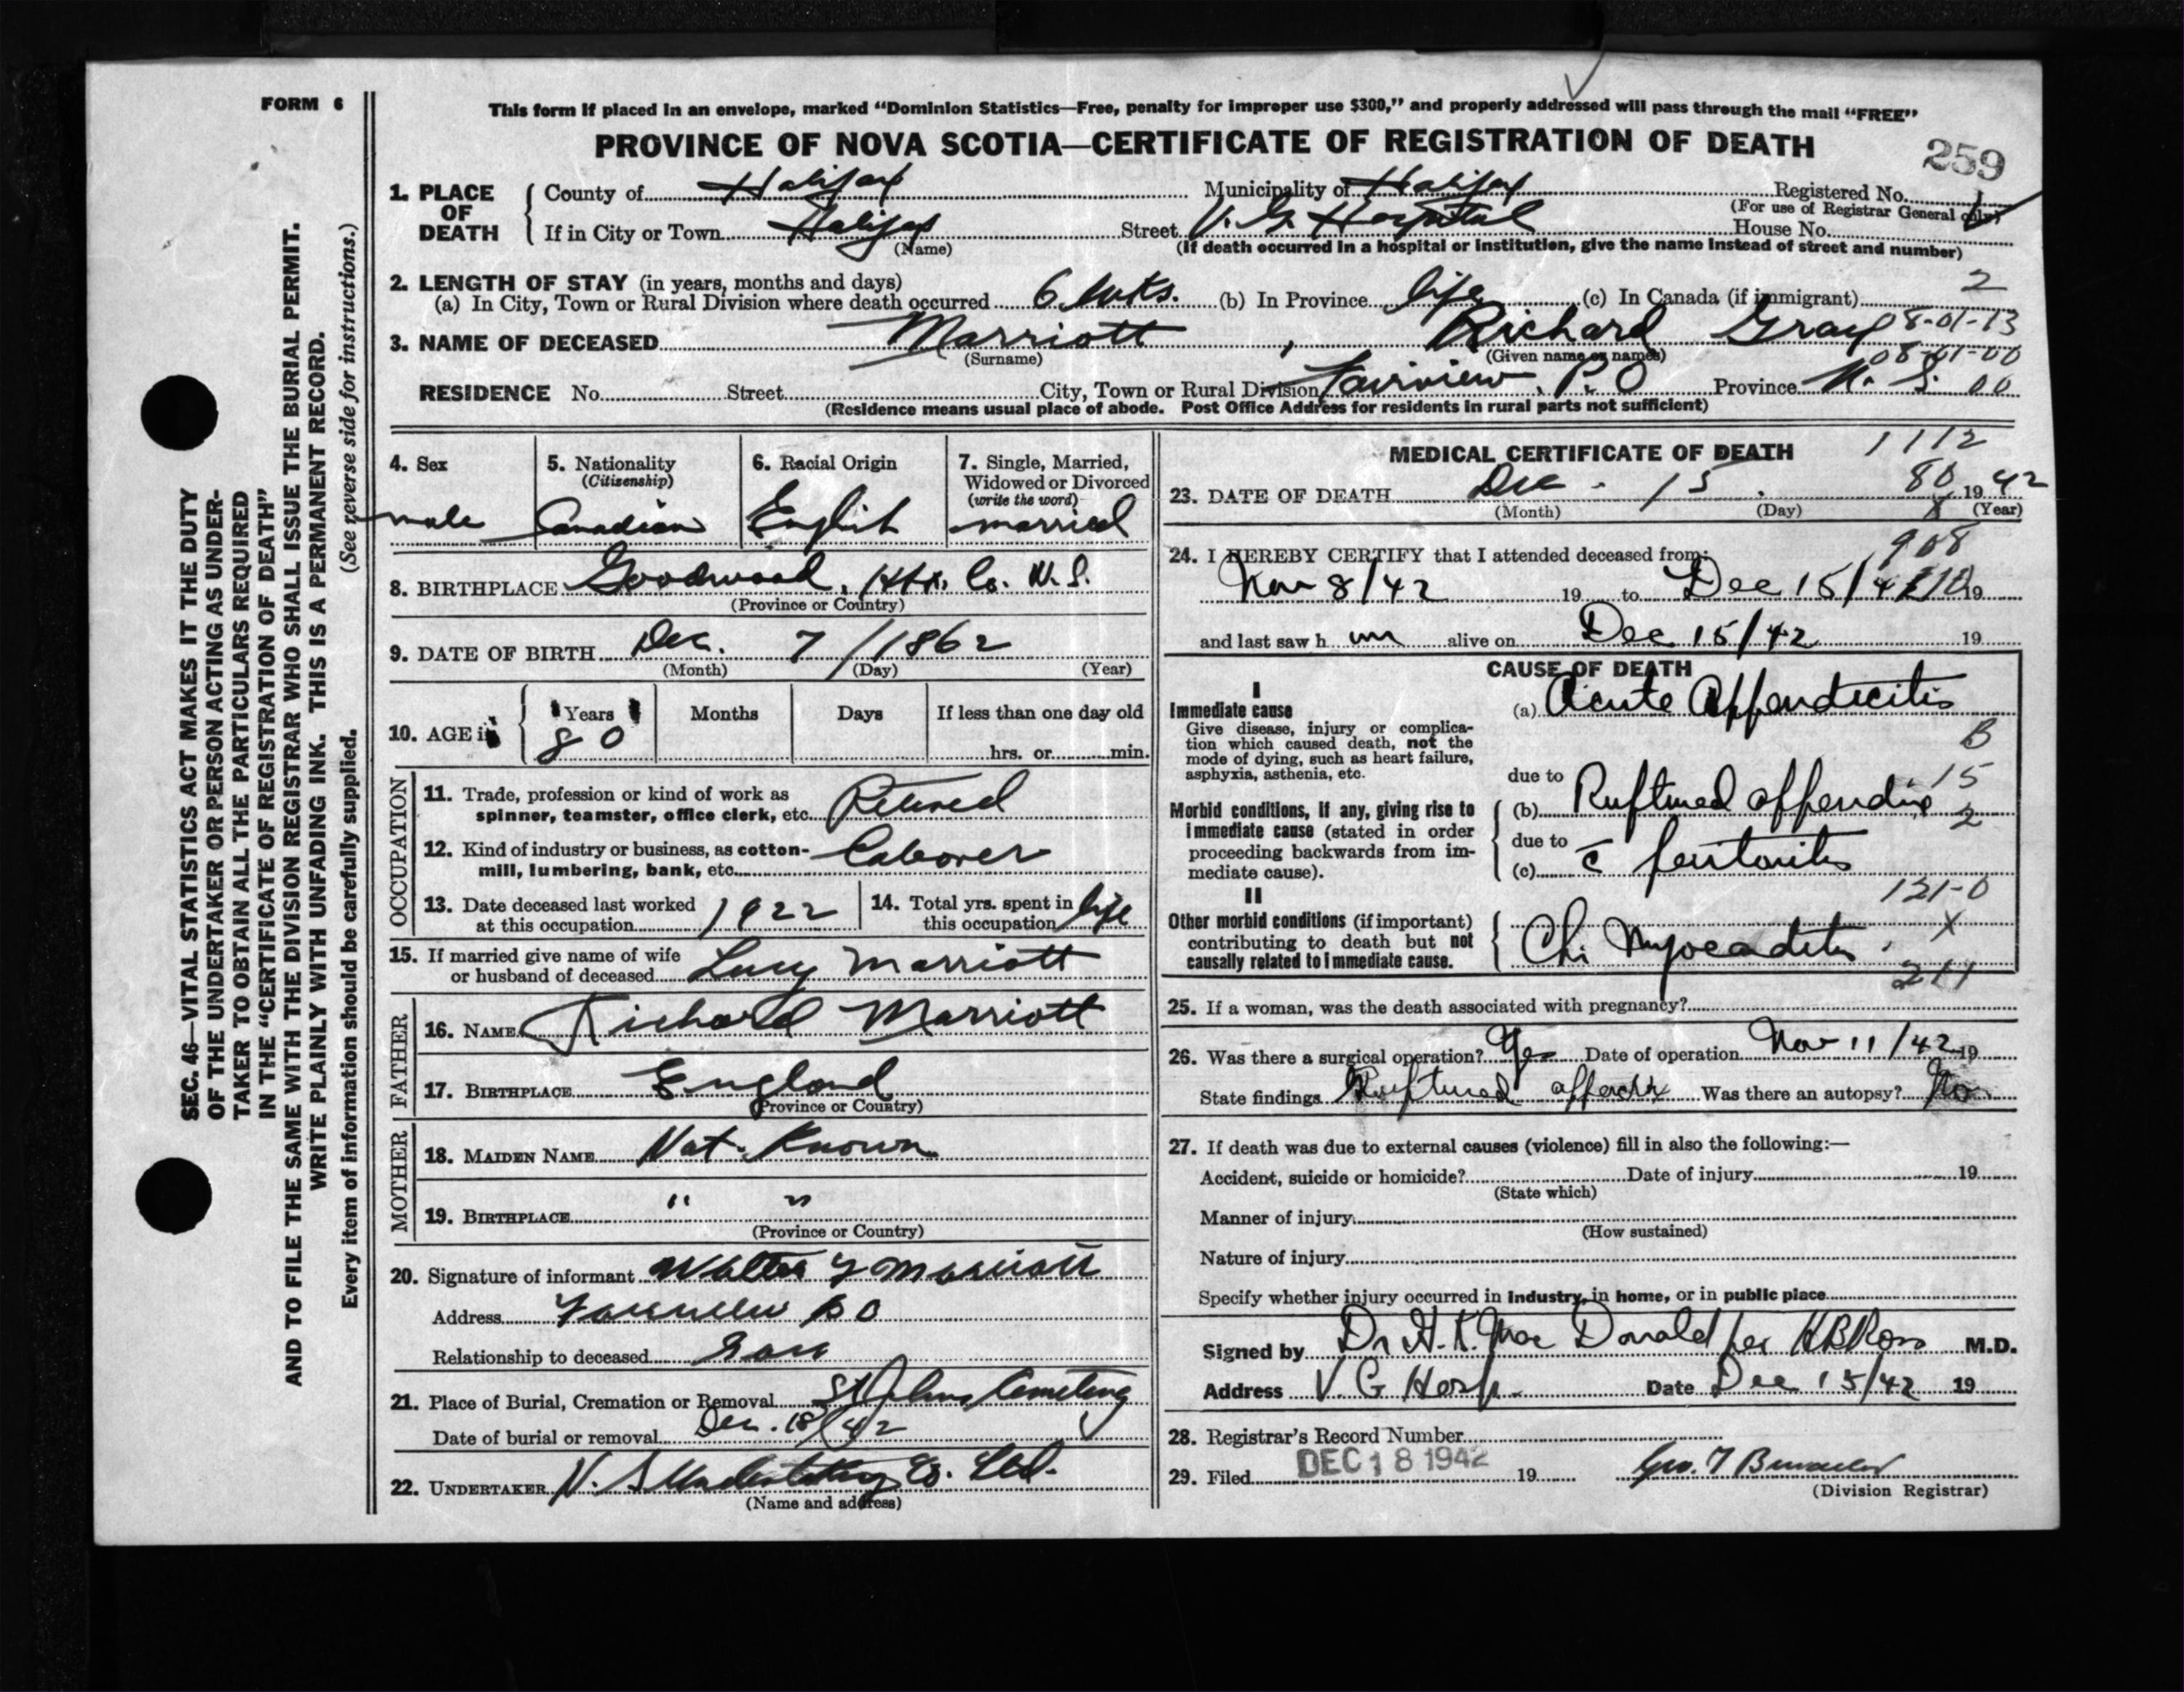 FORM 6
This form if placed in an envelope, marked “Dominion Statistics—Free, penalty for improper use $300,” and properly addressed will pass through the mail “FREE”
PROVINCE OF NOVA SCOTIA—CERTIFICATE OF REGISTRATION OF DEATH
259
1. PLACE OF DEATH
County of Halifax Municipality of Halifax Registered No.
(For use of Registrar General only)
If in City or Town Halifax Street V. G. Hospital House No.
(Name) (If death occurred in a hospital or institution, give the name instead of street and number)
2. LENGTH OF STAY (in years, months and days)
(a) In City, Town or Rural Division where death occurred 6 wks. (b) In Province life (c) In Canada (if immigrant) 2
3. NAME OF DECEASED Marriott, Richard Gray 08-01-13
(Surname) (Given name or names) 08-01-00
RESIDENCE No. Street City, Town or Rural Division Fairview, P.O Province N. S. 00
(Residence means usual place of abode. Post Office Address for residents in rural parts not sufficient)
4. Sex
male
5. Nationality
(Citizenship)
Canadian
6. Racial Origin
English
7. Single, Married,
Widowed or Divorced
(write the word)
married
8. BIRTHPLACE Goodwood, Hfx. Co. N.S.
(Province or Country)
9. DATE OF BIRTH Dec. 7 / 1862
(Month) (Day) (Year)
10. AGE
Years Months Days If less than one day old
80 hrs. or min.
OCCUPATION
11. Trade, profession or kind of work as
spinner, teamster, office clerk, etc. Retired
12. Kind of industry or business, as cotton-
mill, lumbering, bank, etc. Laborer
13. Date deceased last worked
at this occupation 1922
14. Total yrs. spent in
this occupation life
15. If married give name of wife
or husband of deceased Lucy Marriott
FATHER
16. NAME Richard Marriott
17. BIRTHPLACE England
(Province or Country)
MOTHER
18. MAIDEN NAME Not Known
19. BIRTHPLACE " "
(Province or Country)
20. Signature of informant Walter Marriott
Address Fairview P O
Relationship to deceased Son
21. Place of Burial, Cremation or Removal St Johns Cemetery
Date of burial or removal Dec. 18/42
22. UNDERTAKER N. S Undertaking Co. Ltd.
(Name and address)
MEDICAL CERTIFICATE OF DEATH 1112
23. DATE OF DEATH Dec - 15. 80 1942
(Month) (Day) X (Year)
24. I HEREBY CERTIFY that I attended deceased from: 908
Nov 8/42 19 to Dec 15/42 19
and last saw h im alive on Dec 15/42 19
CAUSE OF DEATH
I
Immediate cause
Give disease, injury or complica-
tion which caused death, not the
mode of dying, such as heart failure,
asphyxia, asthenia, etc.
(a) Acute Appendicitis
B
due to
15
Morbid conditions, if any, giving rise to
immediate cause (stated in order
proceeding backwards from im-
mediate cause).
(b) Ruptured appendix
2
due to
(c) c̄ peritonitis
121-0
II
Other morbid conditions (if important)
contributing to death but not
causally related to immediate cause.
X
Chr Myocarditis.
25. If a woman, was the death associated with pregnancy?
26. Was there a surgical operation? Yes Date of operation Nov 11/42 19
State findings Ruptured appendix Was there an autopsy? No
27. If death was due to external causes (violence) fill in also the following:—
Accident, suicide or homicide? Date of injury 19
(State which)
Manner of injury
(How sustained)
Nature of injury
Specify whether injury occurred in industry, in home, or in public place
Signed by Dr H. K. Mac Donald per HB Ross M.D.
Address V. G Hosp. Date Dec 15/42 19
28. Registrar's Record Number
29. Filed DEC 18 1942 19
(Division Registrar)
SEC. 46—VITAL STATISTICS ACT MAKES IT THE DUTY
OF THE UNDERTAKER OR PERSON ACTING AS UNDER-
TAKER TO OBTAIN ALL THE PARTICULARS REQUIRED
IN THE “CERTIFICATE OF REGISTRATION OF DEATH”
AND TO FILE THE SAME WITH THE DIVISION REGISTRAR WHO SHALL ISSUE THE BURIAL PERMIT.
WRITE PLAINLY WITH UNFADING INK. THIS IS A PERMANENT RECORD.
Every item of information should be carefully supplied. (See reverse side for instructions.)